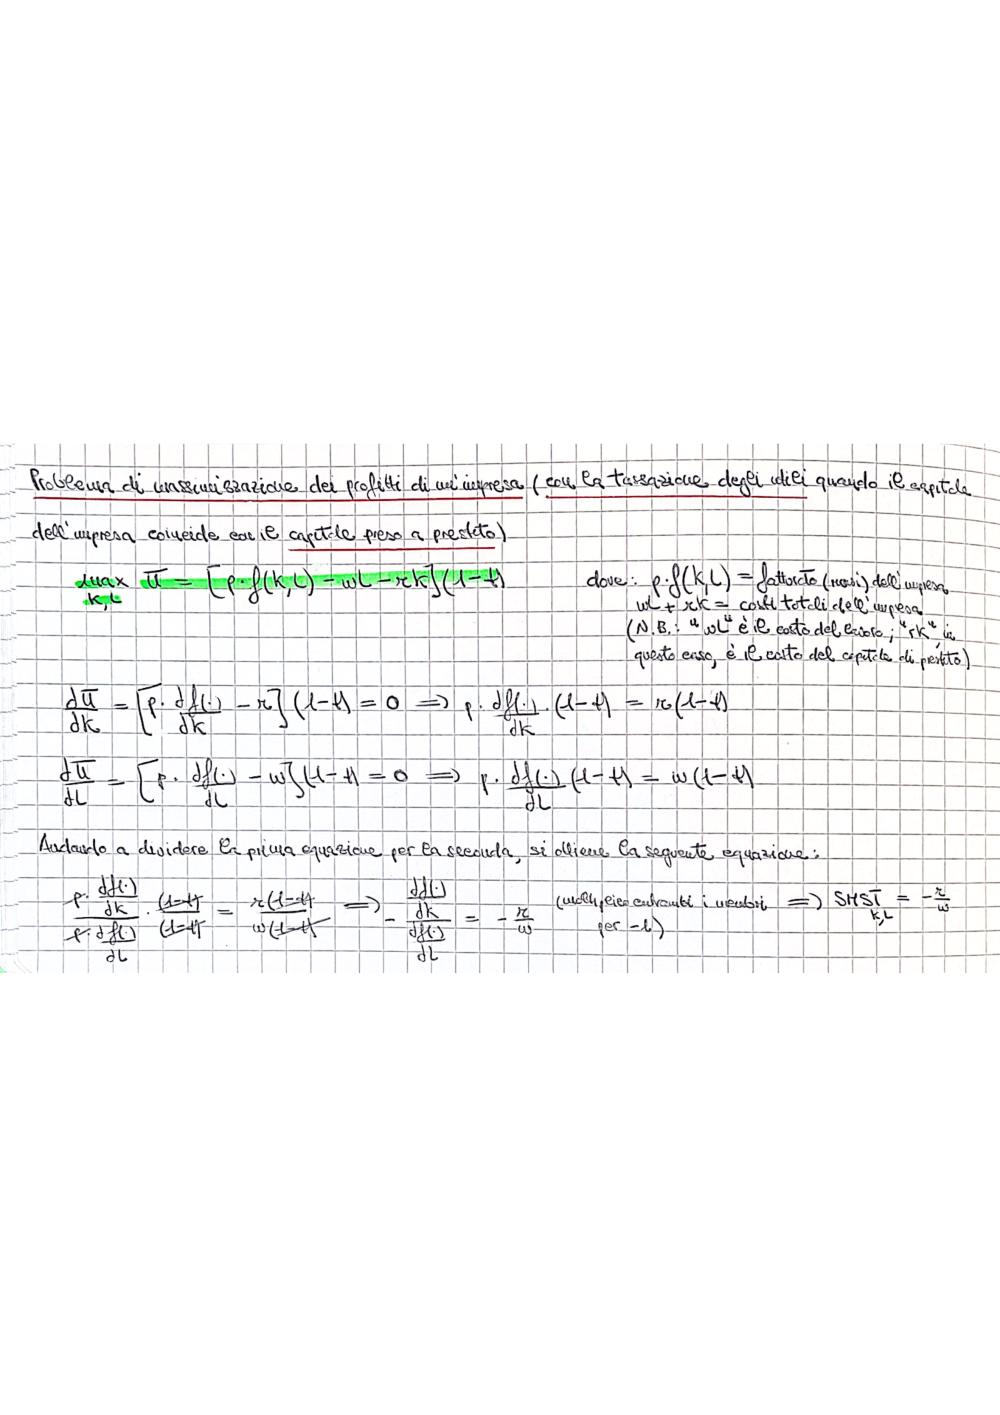 Problema di massimizzazione dei profitti di un'impresa (con la tassazione degli utili quando il capitale
dell'impresa coincide con il capitale preso a prestito)
max Π = [p·f(K,L) - wL - rK](1-t)
K,L
dove: p·f(K,L) = fatturato (ricavi) dell'impresa
wL + rK = costi totali dell'impresa
(N.B.: "wL" è il costo del lavoro; "rK", in
questo caso, è il costo del capitale di prestito)
dΠ/dK = [p· df(·)/dK - r](1-t) = 0 => p· df(·)/dK · (1-t) = r(1-t)
dΠ/dL = [p· df(·)/dL - w](1-t) = 0 => p· df(·)/dL (1-t) = w(1-t)
Andando a dividere la prima equazione per la seconda, si ottiene la seguente equazione:
(p· df(·)/dK)/(p· df(·)/dL) · (1-t)/(1-t) = r(1-t)/w(1-t) => - (df(·)/dK)/(df(·)/dL) = - r/w (moltiplico entrambi i membri per -1) => SMST K,L = - r/w